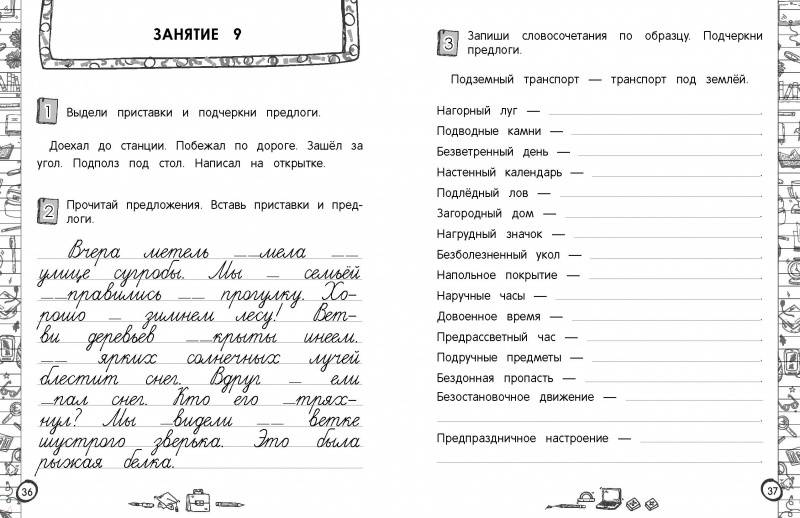 ЗАНЯТИЕ 9
1 Выдели приставки и подчеркни предлоги.
Доехал до станции. Побежал по дороге. Зашёл за
угол. Подполз под стол. Написал на открытке.
2 Прочитай предложения. Вставь приставки и пред-
логи.
Вчера метель __мела __
улице сугробы. Мы _ семьёй
__правились __ прогулку. Хо-
рошо _ зимнем лесу! Вет-
ви деревьев __крыты инеем.
__ ярких солнечных лучей
блестит снег. Вдруг _ ели
_пал снег. Кто его _трях-
нул? Мы _видели __ ветке
шустрого зверька. Это была
рыжая белка.
36
3 Запиши словосочетания по образцу. Подчеркни
предлоги.
Подземный транспорт — транспорт под землёй.
Нагорный луг — .
Подводные камни — .
Безветренный день — .
Настенный календарь — .
Подлёдный лов — .
Загородный дом — .
Нагрудный значок — .
Безболезненный укол — .
Напольное покрытие — .
Наручные часы — .
Довоенное время — .
Предрассветный час — .
Подручные предметы — .
Бездонная пропасть — .
Безостановочное движение —
.
Предпраздничное настроение — .
37